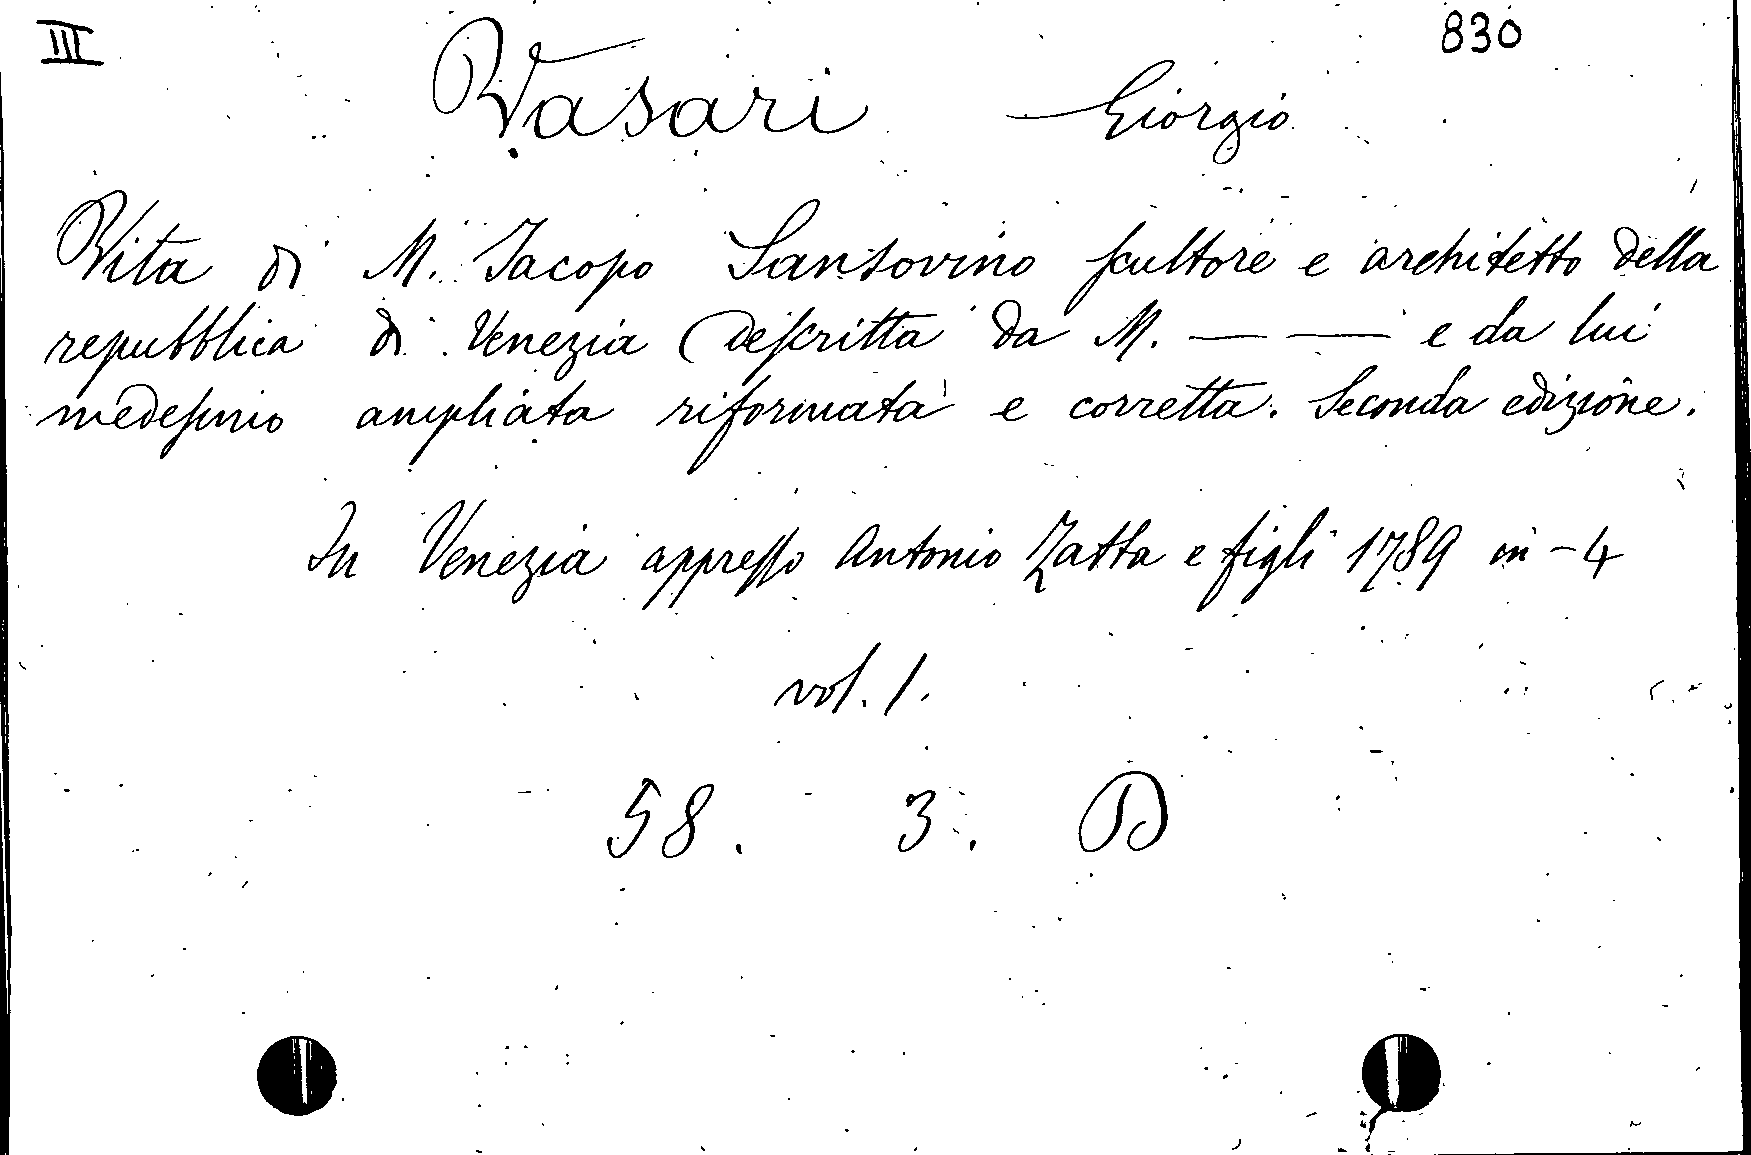 III 830
Vasari Giorgio
Vita di M. Jacopo Sansovino scultore e architetto della
repubblica di Venezia descritta da M. — — e da lui
medesimo ampliata riformata e corretta. Seconda edizione.
In Venezia appresso Antonio Zatta e figli 1789 in-4
vol. 1.
58. 3. D